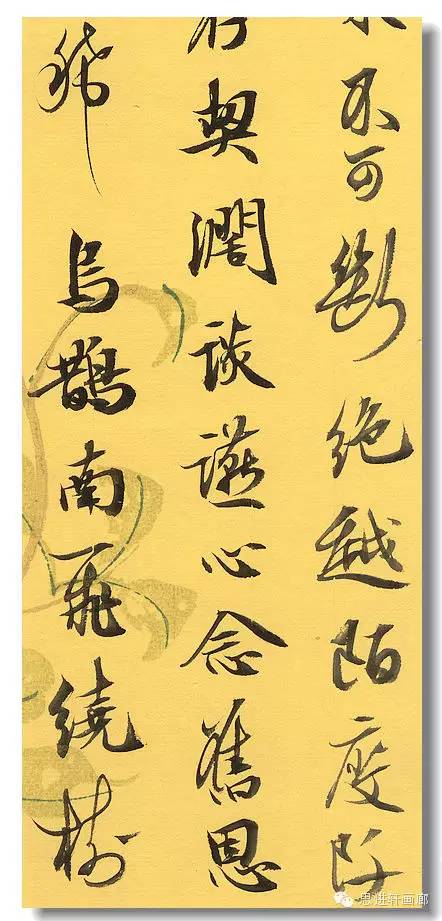 不可斷絕越陌度阡
契濶談讌心念舊恩
稀烏鵲南飛繞樹
思进轩画廊